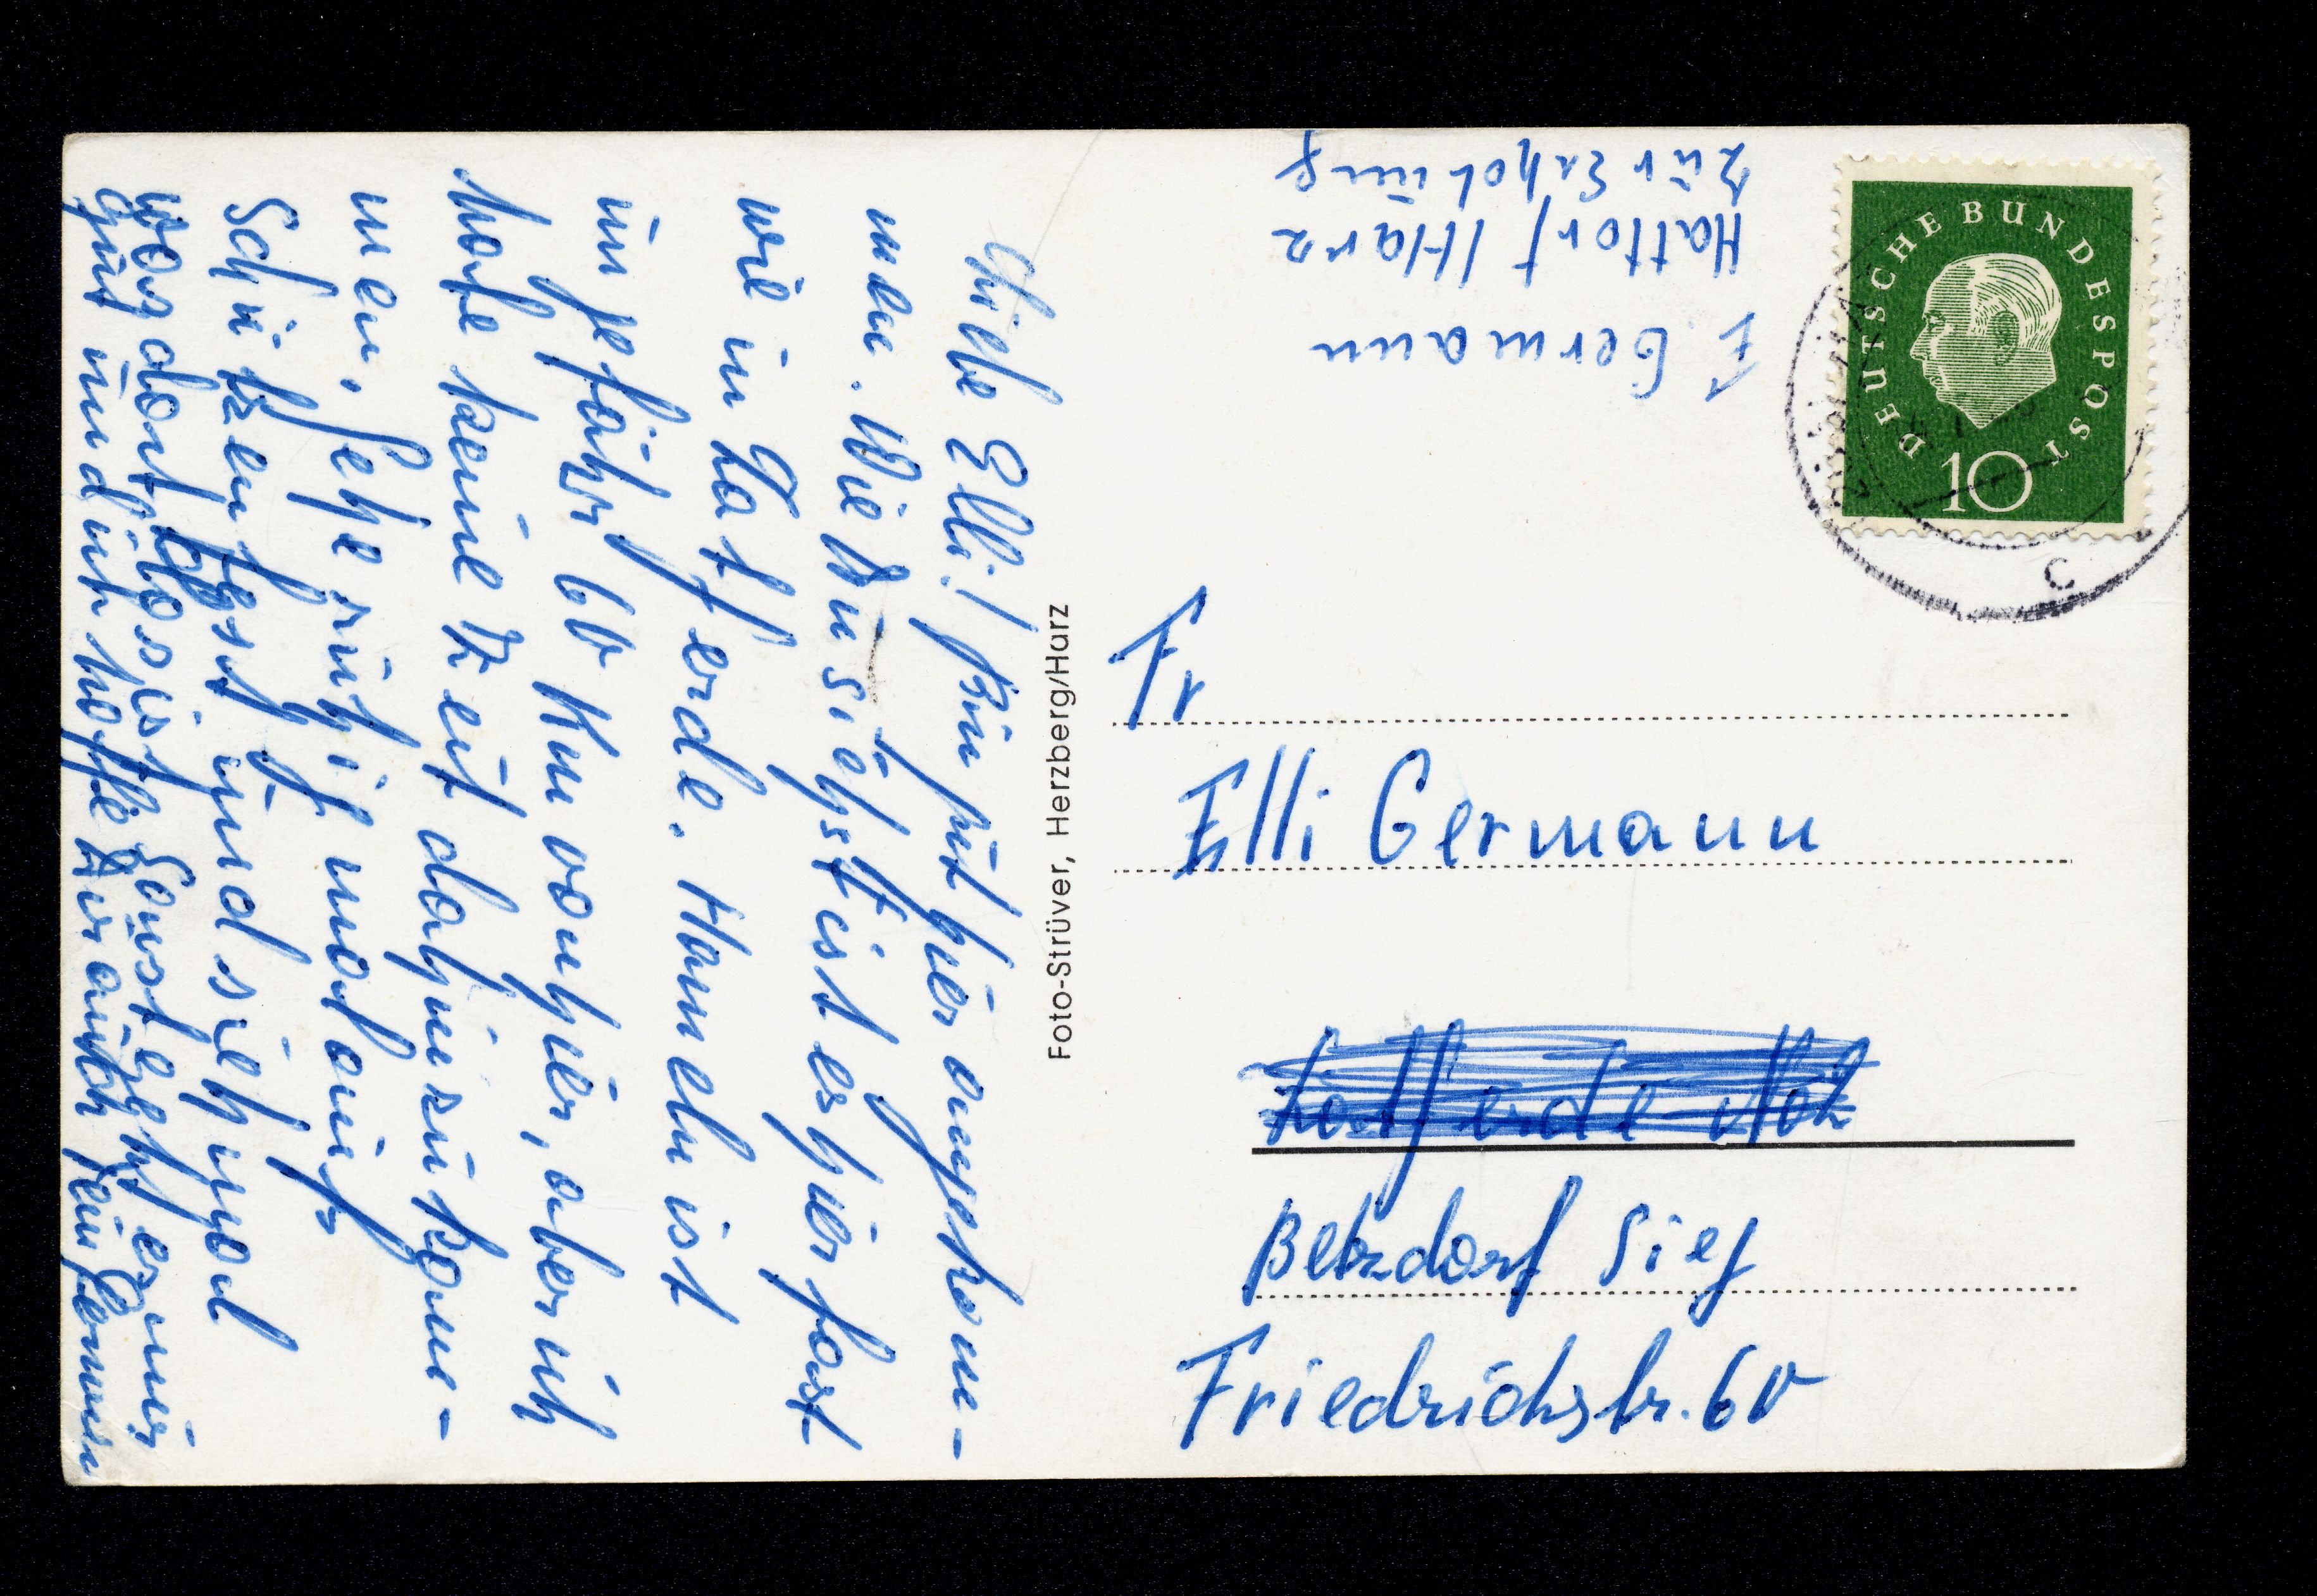 Liebe Elli! Bin gut hier angekom-
men. Wie Du siehst ist es hier fast
wie in Latferde. Hameln ist
ungefähr 60 Km von hier, aber ich
habe keine Zeit dahinzukom-
men, gehe ruhig mal aufs
Schützenfest und sieh mal
was dort los ist. Sonst geht es mir
gut und ich hoffe Dir auch Dein Hermann
Foto-Strüver, Herzberg/Harz
F. Germann
Hattorf /Harz
Zur Erholung
DEUTSCHE BUNDESPOST
10
C
Fr
Elli Germann
Latferde
Betzdorf Sieg
Friedrichstr. 60